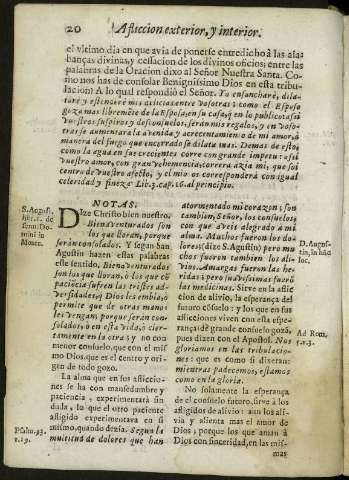 20 Afliccion exterior, y interior.
el vltimo dia en que avia de ponerse entredicho à las ala-
banças divinas, y cessacion de los divinos oficios; entre las
palabras de la Oracion dixo al Señor Nuestra Santa. Co-
mo nos has de consolar Benignissimo Dios en esta tribu-
lacion? A lo qual respondiò el Señor. Yo ensancharè, dila-
tarè y estenderè mis delicias entre vosotras: como el Esposo
goza mas libremente de la Esposa, en su casa, q̃ en lo publico: assi
vuestros suspiros y desconsuelos, seràn mis regalos, y en voso-
tras se aumentarà la avenida y acrecentamiento de mi amor, à
manera del fuego que encerrado se dilata mas. Demas de esto,
como la agua en sus crecientes corre con grande impetu: assi
vuestro amor, con gran vehemencia, correrà àzia mi, que soi
centro de vuestro afecto, y el mio os corresponderà con igual
celeridad y fineza Lib. 3. cap. 16. al principio.
NOTAS.
S. Augusti.
lib. 1. c. 5. de
serm. Do-
mini in
Monte.
DIze Christo bien nuestro,
Bienaventurados son
los que lloran, porque
seràn consolados. Y segun San
Agustin hazen estas palabras
este sentido. Bienaventurados
son los que lloran, ò los que cõ
paciencia sufren las tristes ad-
versidades, q̃ Dios les embia, ò
permite que de otras manos
les vengan, porque seràn con-
solados, ò en esta vida, ò cier-
tamente en la otra: y no con
menor consuelo, que con el mis-
mo Dios, que es el centro y ori-
gen de todo gozo.
La alma que en sus afliccio-
nes se ha con mansedumbre y
paciencia, experimentarà sin
dada, lo que el otro paciente
afligido experimentava en si
mismo, quando dezia. Segun la
multitud de dolores que han
Psalm. 93.
v. 19.
atormentado mi coraçon: son
tambien, Señor, los consuelos,
con que aveis alegrado à mi
alma. Muchos fueron los do-
lores (dize S. Agustin) pero mu
chos fueron tambien los ali-
vios. Amargas fueron las he-
ridas: pero suavissimas fueron
las medicinas. Sirve en la aflic
cion de alivio, la esperança del
futuro cõsuelo: y los que en sus
aflicciones viven con esta espe-
rança de grande consuelo gozã,
pues dizen con el Apostol. Nos
gloriamos en las tribulacio-
nes: que es como si dixeran:
mientras padecemos, estamos
como en la gloria.
No solamente la esperança
de el consuelo futuro, sirve à los
afligidos de alivio: aun los ali-
via y alienta mas el amor de
Dios; porque los que aman à
Dios con sinceridad, en las mis-
mas
D. Augus-
tin, in hũc
loc.
Ad Rom.
5. v. 3.